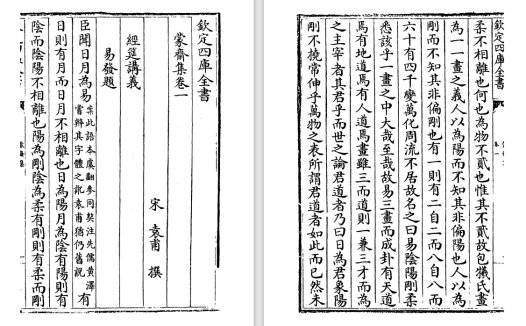 欽定四庫全書
蒙齋集卷一
宋 袁甫 撰
經筵講義
易發題
臣聞日月為易案此語本虞翻參同契注先儒黃澤嘗辨其字體之訛袁甫猶仍舊說有
日則有月而日月不相離也日為陽月為陰有陽則有
陰而陰陽不相離也陽為剛陰為柔有剛則有柔而剛
欽定四庫全書
柔不相離也何也為物不貳也惟其不貳故包犧氏畫
為一一畫之義人以為陽而不知其非偏陽也人以為
剛而不知其非偏剛也有一則有二自二而八自八而
六十有四千變萬化周流不居故名之曰易陰陽剛柔
悉該乎一畫之中大哉至哉故易三畫而成卦有天道
焉有地道焉有人道焉畫雖三而道則一兼三才而為
之主宰者其君乎而世之論君道者乃曰日為君象陽
剛不撓常伸乎萬物之表所謂君道者如此而已然未